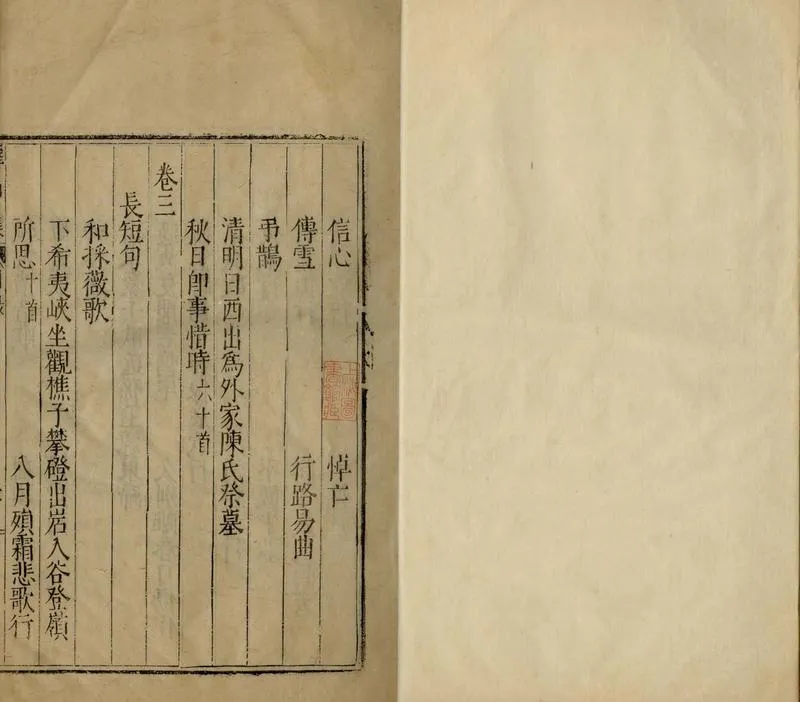 信心 悼亡
傳雪 行路易曲
弔鵲
清明日西出爲外家陳氏祭墓
秋日卽事惜時六十首
卷三
長短句
和採薇歌
下希夷峽坐觀樵子攀磴出岩入谷登嶺
所思十首 八月殞霜悲歌行